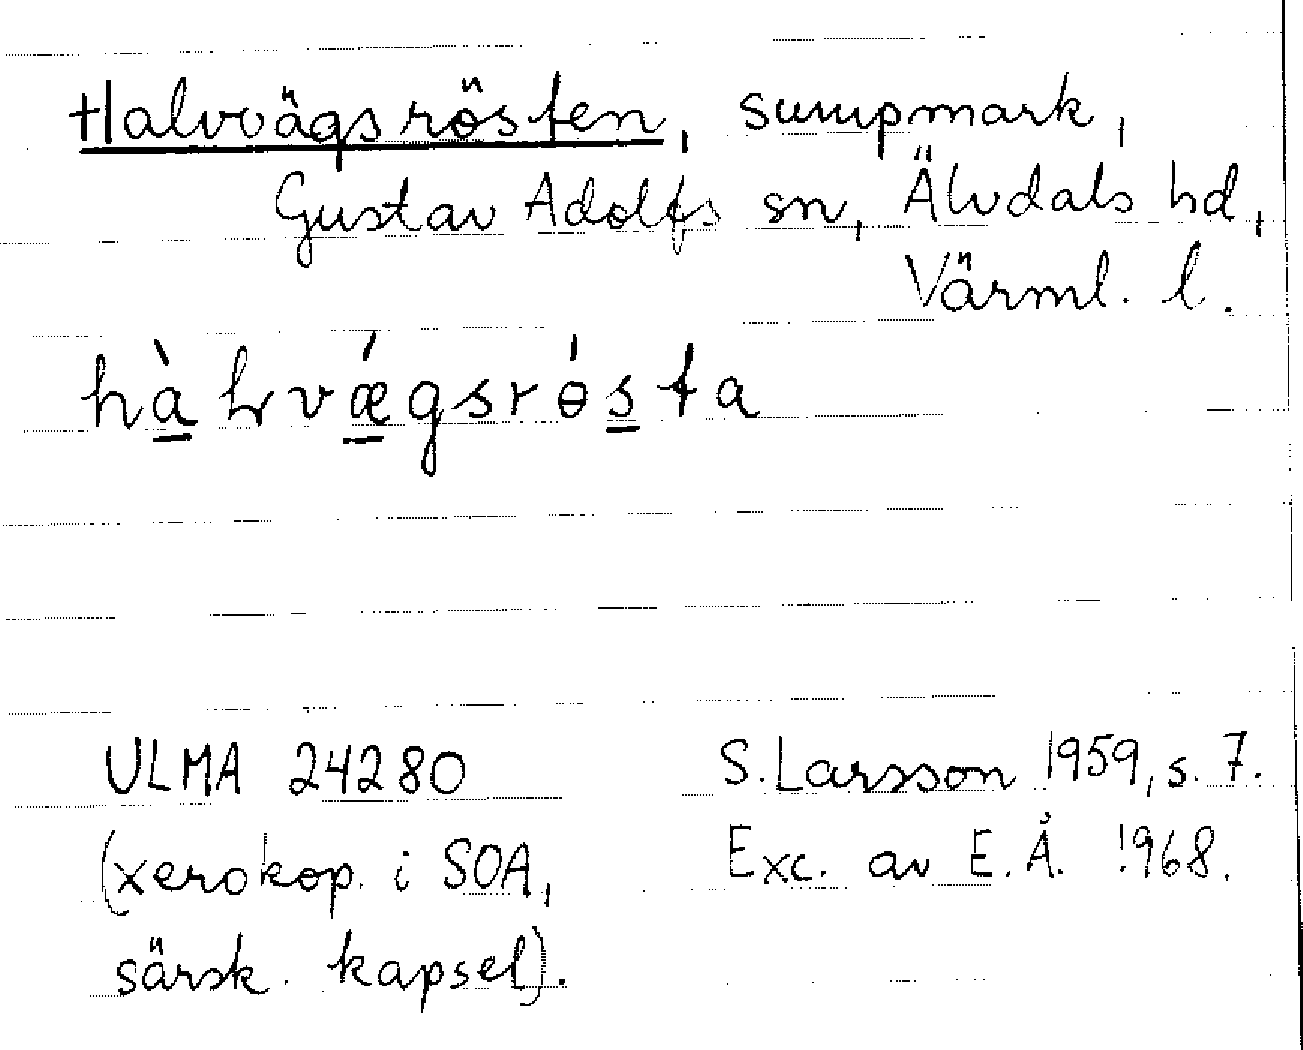 Halvvägsrösten, sumpmark,
Gustav Adolfs sn, Älvdals hd,
Värml. l.
hàlvǽgsrɵ́sta
ULMA 24280 S. Larsson 1959, s. 7.
(xerokop. i SOA, Exc. av E. Å. 1968.
särsk. kapsel).